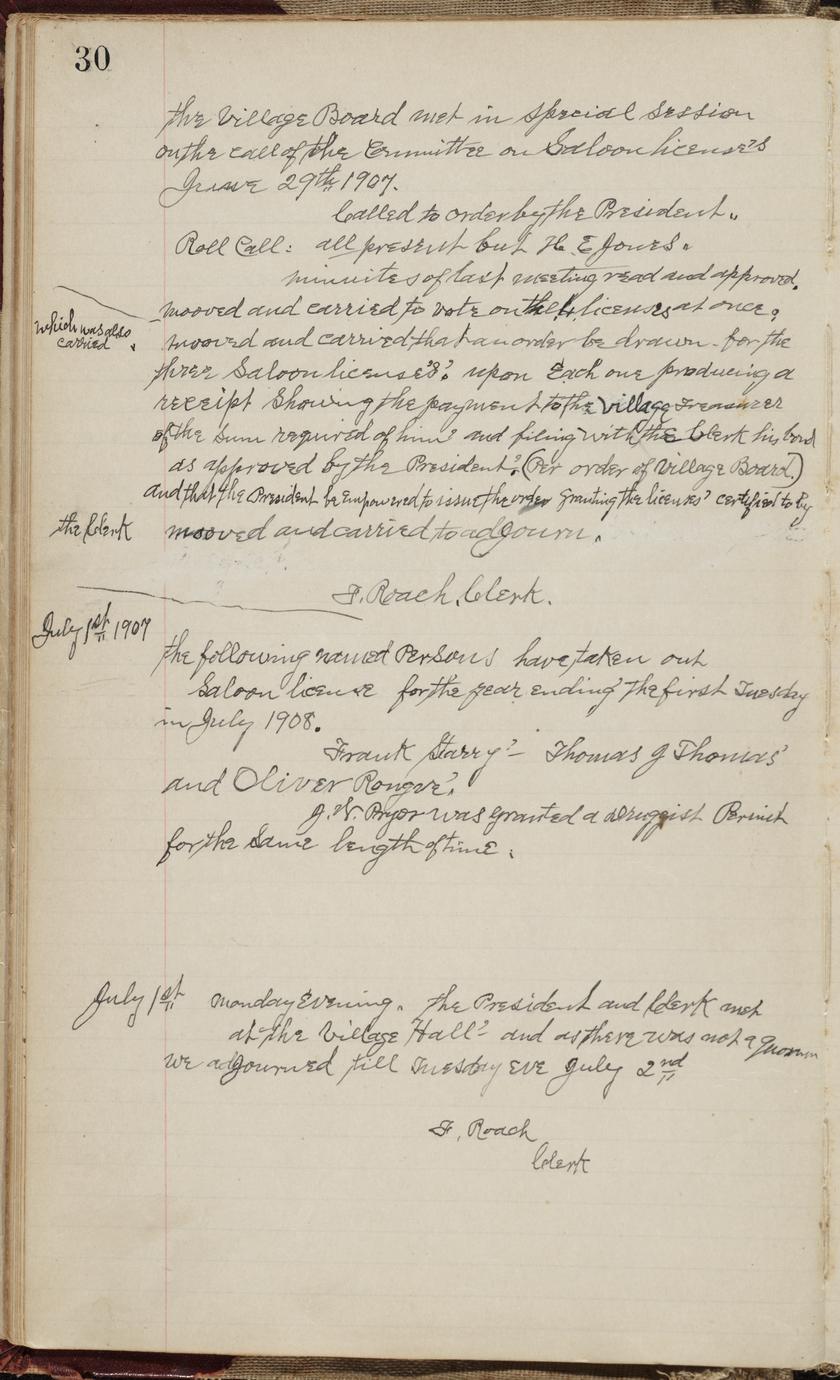 30
the Village Board met in special session
on the call of the Committee on Saloon license's
June 29th 1907.
Called to order by the President.
Roll Call: all present but H. E Jones.
minuites of last meeting read and approved.
mooved and carried to vote on the 4 licenses at once,
which was also
carried.
mooved and carried that an order be drawn for the
three Saloon license's. upon Each one producing a
receipt Showing the payment to the Village Treasurer
of the Sum required of him and filing with the Clerk his bond
as approved by the President. (Per order of Village Board.)
and that the President be Empowered to issue the order granting the licenses certified to by
the Clerk
mooved and carried to adjourn.
F. Roach, Clerk.
July 1st 1907
the following named Persons have taken out
Saloon license for the year ending the first Tuesday
in July 1908.
Frank Starry - Thomas J Thomas
and Oliver
J. W. Pryor was granted a druggist Permit
for the same length of time.
July 1st monday Evening. the President and Clerk met
at the Village Hall and as there was not a quorum
we adjourned till Tuesday eve July 2nd
F. Roach
Clerk